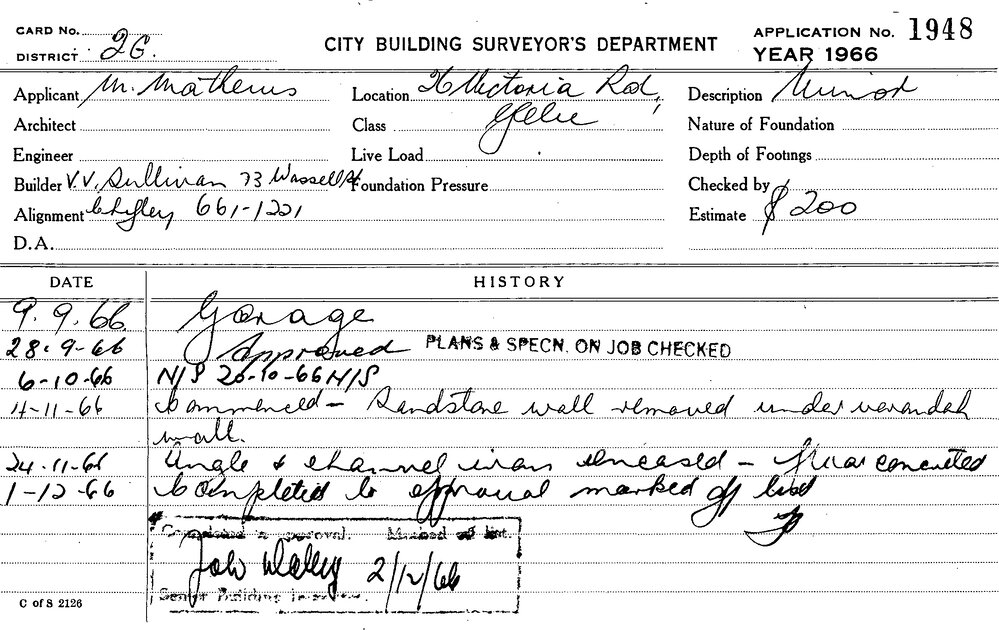 CARD No.
DISTRICT 2G.
CITY BUILDING SURVEYOR'S DEPARTMENT
APPLICATION No. 1948
YEAR 1966
Applicant M. Mathews
Location 26 Victoria Rd,
Description Minor
Architect
Class Glebe
Nature of Foundation
Engineer
Live Load
Depth of Footings
Builder V.V. Sullivan 73 Wassell St
Foundation Pressure
Checked by
Alignment Chifley 661-1221
Estimate $200
D.A.
DATE HISTORY
9.9.66 Garage
28.9.66 Approved PLANS & SPECN. ON JOB CHECKED
6-10-66 N/S 20-10-66 N/S
4-11-66 Commenced - Sandstone wall removed under verandah
wall.
24.11.66 Angle & channel irons encased - floor concreted
1-12-66 Completed to approval marked off list
Completed to approval. Marked off list.
2/12/66
Senior Building Inspector.
C of S 2126